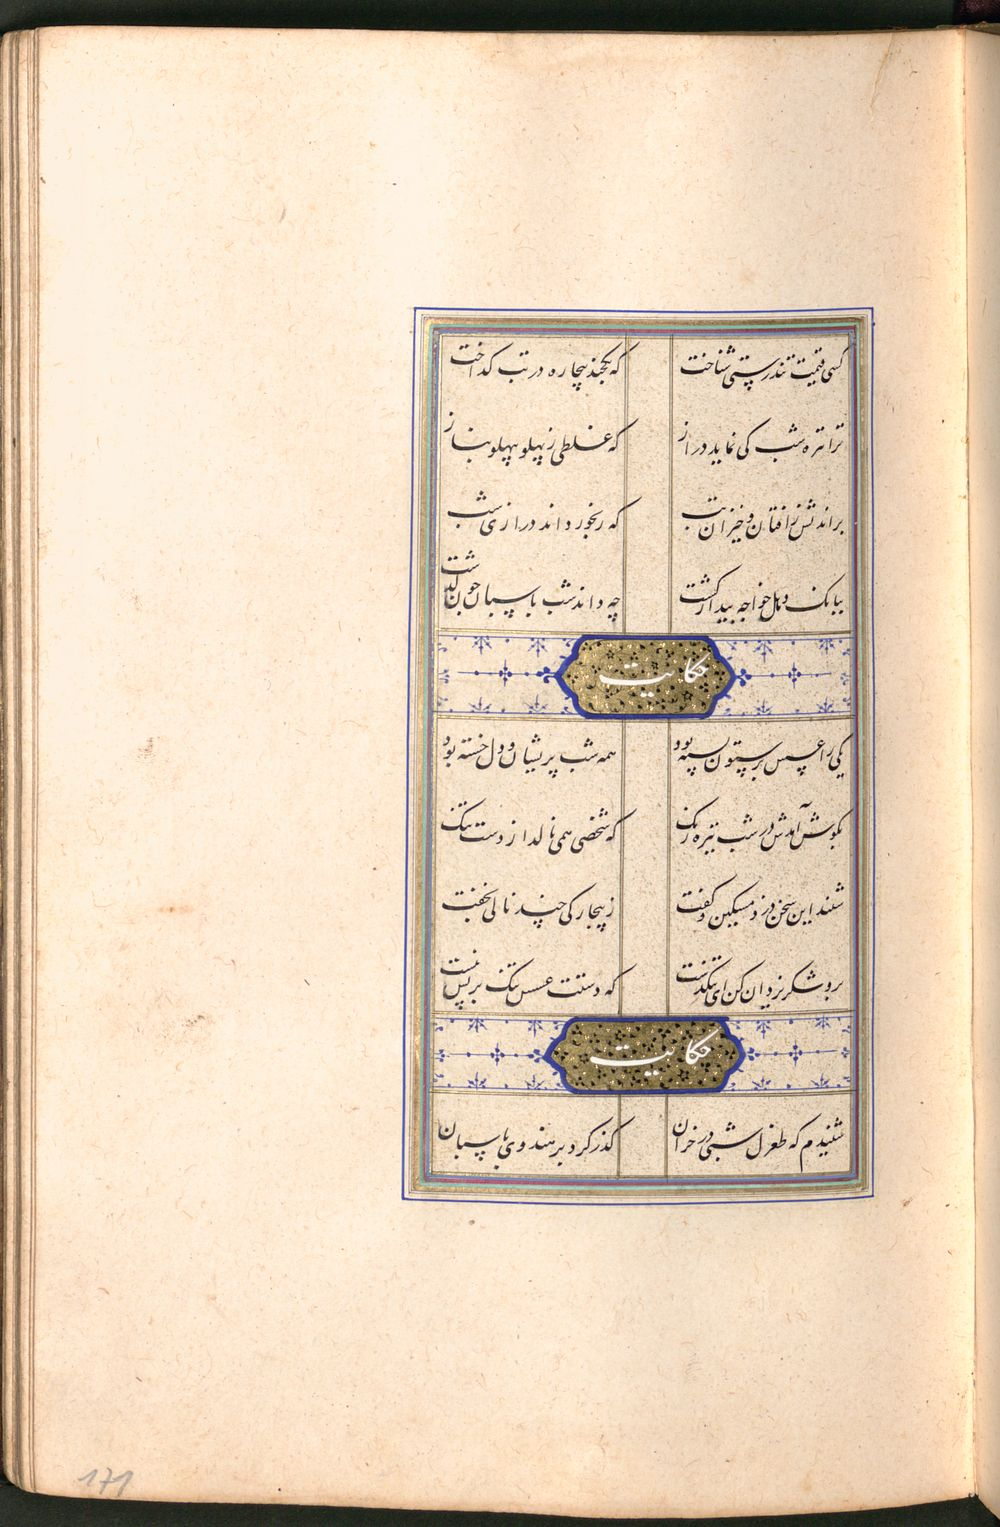 کسی قیمت تندرستی شناخت که یکچند بیچاره در تب گداخت
ترا تیره شب کی نماید دراز که غلطی ز پهلو بپهلوی ناز
براندیش از افتان و خیزان تب که رنجور داند درازی شب
ببانک دهل خواجه بیدار گشت چه داند شب پاسبان چون گذشت
حکایت
یکی را عسس دست بر ستون بسته بود همه شب پریشان و دل خسته بود
بگوش آمدش در شب تیره رنگ که شخصی همی نالد از دست تنگ
شنید این سخن دزد مسکین و گفت ز بیچارگی چند نالی بخفت
برو شکر یزدان کن ای تنگدست که دستت عسس تنگ بر پس نبست
حکایت
شنیدم که طغرل شبی در خزان گذر کرد بر هندوی پاسبان
171